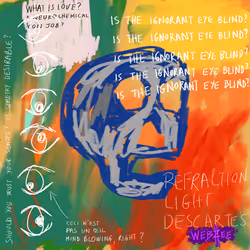 WHAT IS LOVE?
A NEUROCHEMICAL
CON JOB?
IS THE IGNORANT EYE BLIND?
IS THE IGNORANT EYE BLIND?
IS THE IGNORANT EYE BLIND?
IS THE IGNORANT EYE BLIND?
IS THE IGNORANT EYE BLIND?
SHOULD YOU TRUST YOUR EYES? IS SYMMETRY DESIRABLE?
CECI N'EST
PAS UN OEIL
MIND BLOWING, RIGHT?
REFRACTION
LIGHT
DESCARTES